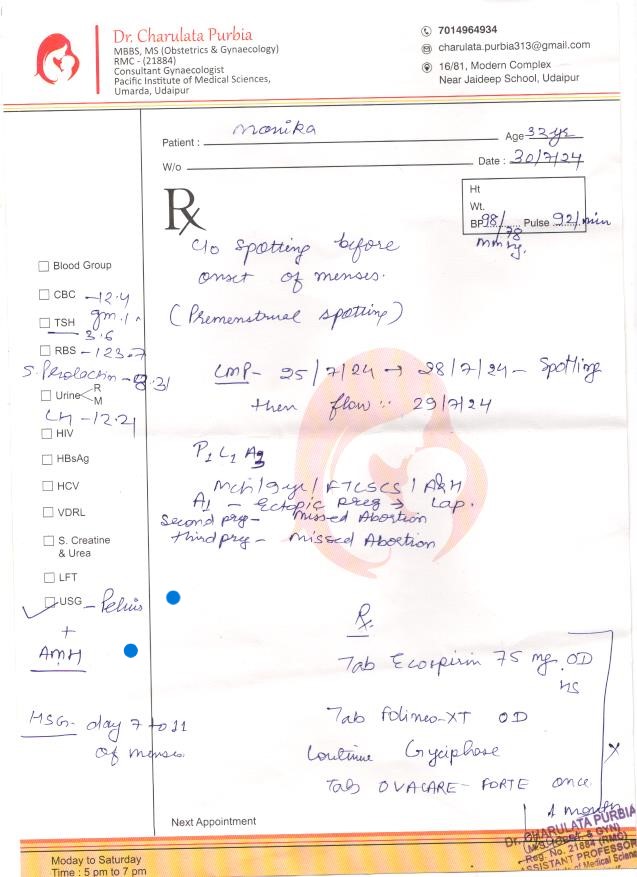 Dr. Charulata Purbia
MBBS, MS (Obstetrics & Gynaecology)
RMC - (21884)
Consultant Gynaecologist
Pacific Institute of Medical Sciences,
Umarda, Udaipur
7014964934
charulata.purbia313@gmail.com
16/81, Modern Complex
Near Jaideep School, Udaipur
Patient : Monika Age 32 yr
W/o Date : 30/7/24
Ht
Wt.
BP 98/78 mmHg. Pulse 92/min
Rx
C/o Spotting before
onset of menses.
(Premenstrual spotting)
LMP- 25/7/24 → 28/7/24 - Spotting
then flow :: 29/7/24
P1 L1 A3
Mch/9yr/FTLSCS/A&H
A1 - Ectopic preg → Lap.
Second prg- Missed Abortion
third prg- Missed Abortion
Blood Group
CBC -12.4 gm%
TSH 3.6
RBS -123.7
S. Prolactin - 8.31
Urine R M
LH -12.21
HIV
HBsAg
HCV
VDRL
S. Creatine
& Urea
LFT
USG - Pelvis
+
AMH
HSG- day 7 to 11
of menses
Rx
Tab Ecospirin 75 mg OD
HS
Tab Folineo-XT OD
Continue Gyciphase
Tab OVACARE-FORTE once
x 1 month
Next Appointment
Dr. CHARULATA PURBIA
Reg. No. 21884 (RMC)
ASSISTANT PROFESSOR
of Medical Science
Moday to Saturday
Time : 5 pm to 7 pm